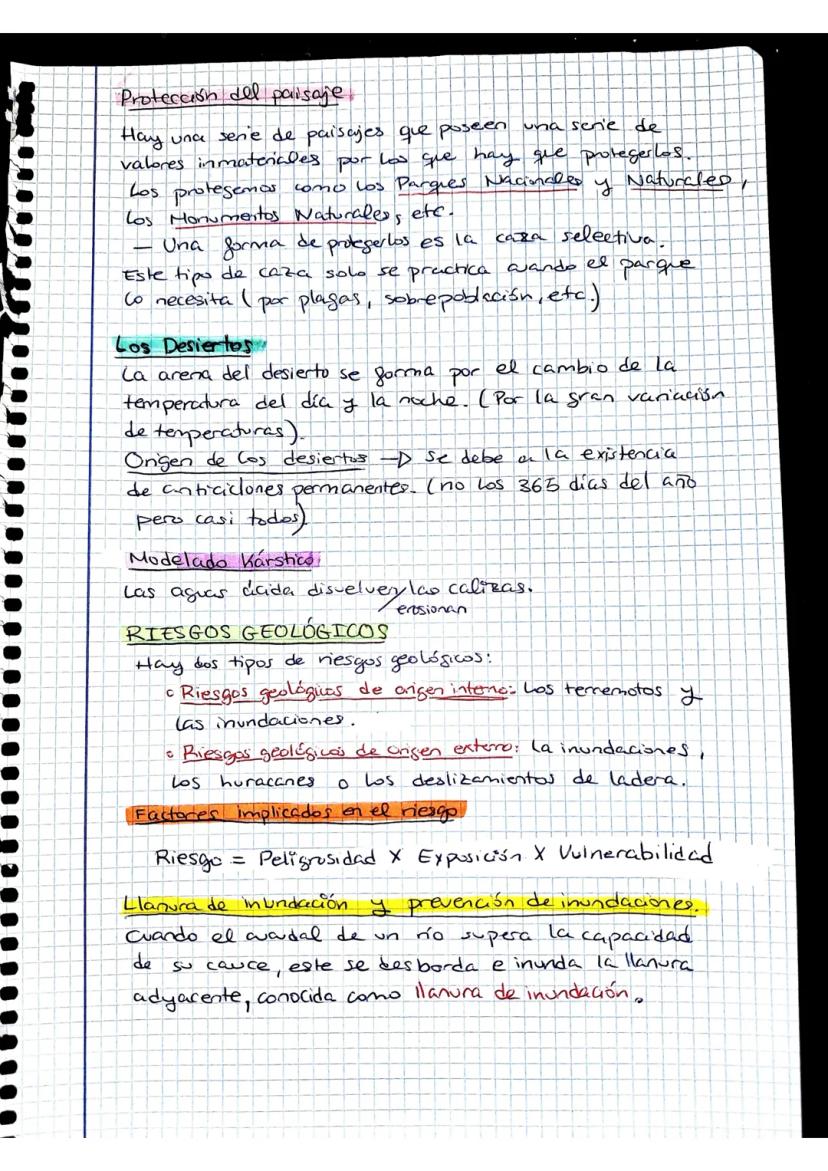 Protección del paisaje
Hay una serie de paisajes que poseen una serie de
valores inmateriales por los que hay que protegerlos.
Los protegemos como los Parques Nacionales y Naturales,
los Monumentos Naturales, etc.
– Una forma de protegerlos es la caza selectiva.
Este tipo de caza solo se practica cuando el parque
lo necesita (por plagas, sobrepoblación, etc.)
Los Desiertos
La arena del desierto se forma por el cambio de la
temperatura del día y la noche. (Por la gran variación
de temperaturas).
Origen de los desiertos → se debe a la existencia
de anticiclones permanentes. (no los 365 días del año
pero casi todos)
Modelado Kárstico
Las aguas ácida disuelven/las calizas.
erosionan
RIESGOS GEOLÓGICOS
Hay dos tipos de riesgos geológicos:
• Riesgos geológicos de origen interno: Los terremotos y
las inundaciones.
• Riesgos geológicos de origen externo: la inundaciones,
los huracanes o los deslizamientos de ladera.
Factores implicados en el riesgo
Riesgo = Peligrosidad X Exposición X Vulnerabilidad
Llanura de inundación y prevención de inundaciones.
Cuando el caudal de un río supera la capacidad
de su cauce, este se desborda e inunda la llanura
adyacente, conocida como llanura de inundación.